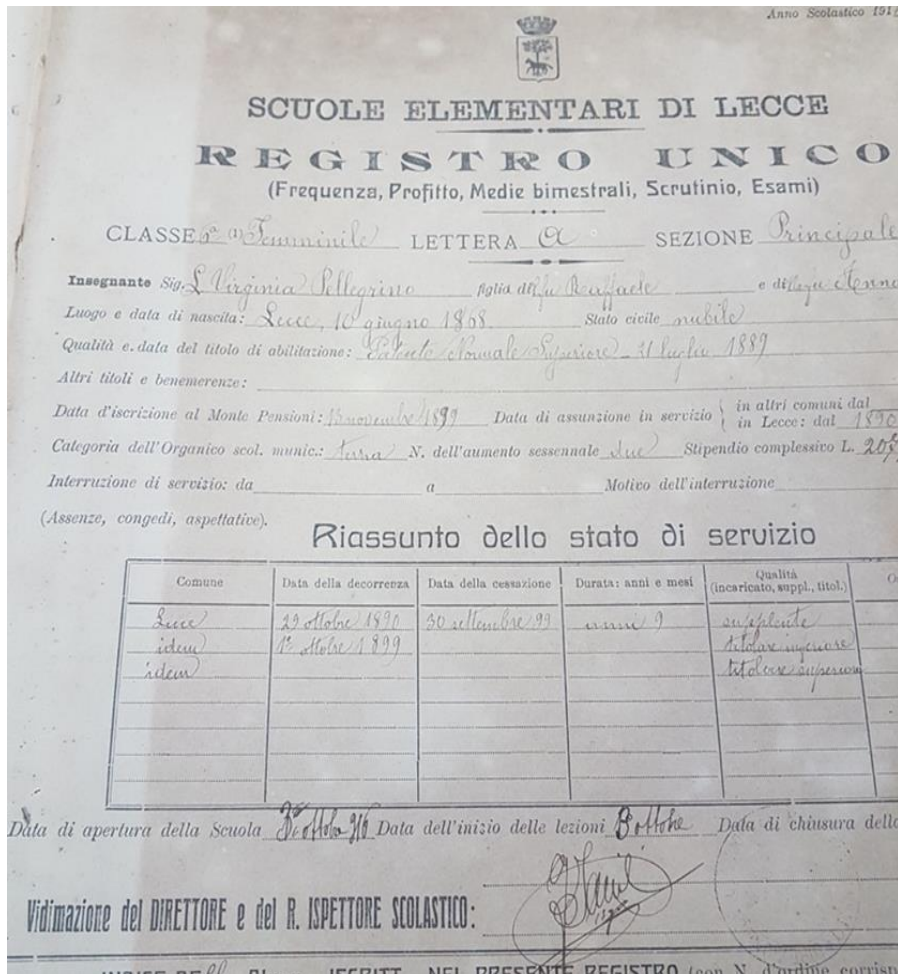 Anno Scolastico 191
SCUOLE ELEMENTARI DI LECCE
REGISTRO UNICO
(Frequenza, Profitto, Medie bimestrali, Scrutinio, Esami)
CLASSE Femminile LETTERA A SEZIONE Principale
Insegnante Sig. Virginia Pellegrino figlia di fu Raffaele e di
Luogo e data di nascita: Lecce, 10 giugno 1868 Stato civile nubile
Qualità e data del titolo di abilitazione: Patente Normale Superiore - 21 luglio 1889
Altri titoli e benemerenze:
Data d'iscrizione al Monte Pensioni: 13 novembre 1899 Data di assunzione in servizio { in altri comuni dal
in Lecce: dal 1890
Categoria dell'Organico scol. munic.: terza N. dell'aumento sessennale due Stipendio complessivo L.
Interruzione di servizio: da a Motivo dell'interruzione
(Assenze, congedi, aspettative).
Riassunto dello stato di servizio
Comune Data della decorrenza Data della cessazione Durata: anni e mesi Qualità
(incaricato, suppl., titol.)
Lecce 29 ottobre 1890 30 settembre 99 anni 9 supplente
idem 1° ottobre 1899 titolare inferiore
idem titolare superiore
Data di apertura della Scuola ottobre 916 Data dell'inizio delle lezioni ottobre Data di chiusura
Vidimazione del DIRETTORE e del R. ISPETTORE SCOLASTICO:
NEL PRESENTE REGISTRO (con N. d'ordine